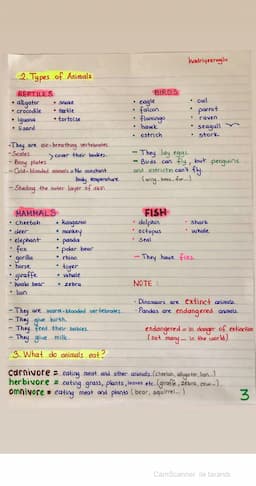 2. Types of Animals
REPTILES
• alligator • snake
• crocodile • turtle
• iguana • tortoise
• lizard
- They are air-breathing vertebrates.
- Scales
- Bony plates > cover their bodies.
- Cold-blooded animals → No constant body temperature
- Shedding the outer layer of skin.
BIRDS
• eagle • owl
• falcon • parrot
• flamingo • raven
• hawk • seagull
• ostrich • stork
- They lay eggs.
- Birds can fly, but penguins
and ostrichs can't fly.
MAMMALS
• cheetah • kangaroo
• deer • monkey
• elephant • panda
• fox • polar bear
• gorilla • rhino
• horse • tiger
• giraffe • whale
• koala bear • zebra
• lion
- They are warm-blooded vertebrates.
- They give birth.
- They feed their babies.
- They give milk.
FISH
• dolphin • shark
• octopus • whale
• seal
- They have fins.
NOTE :
- Dinosaurs are extinct animals.
- Pandas are endangered animals.
endangered = in danger of extinction
(not many ... in the world)
3. What do animals eat?
carnivore = eating meat and other animals. (cheetah, alligator, lion..)
herbivore = eating grass, plants, leaves etc. (giraffe, zebra, cow...)
omnivore = eating meat and plants (bear, squirrel...)
3
CamScanner ile tarandı